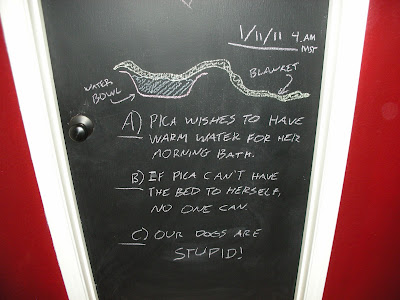 1/11/11 4 AM
MST
WATER
BOWL
BLANKET
A) PICA WISHES TO HAVE
WARM WATER FOR HER
MORNING BATH.
B) IF PICA CAN'T HAVE
THE BED TO HERSELF,
NO ONE CAN.
C) OUR DOGS ARE
STUPID!